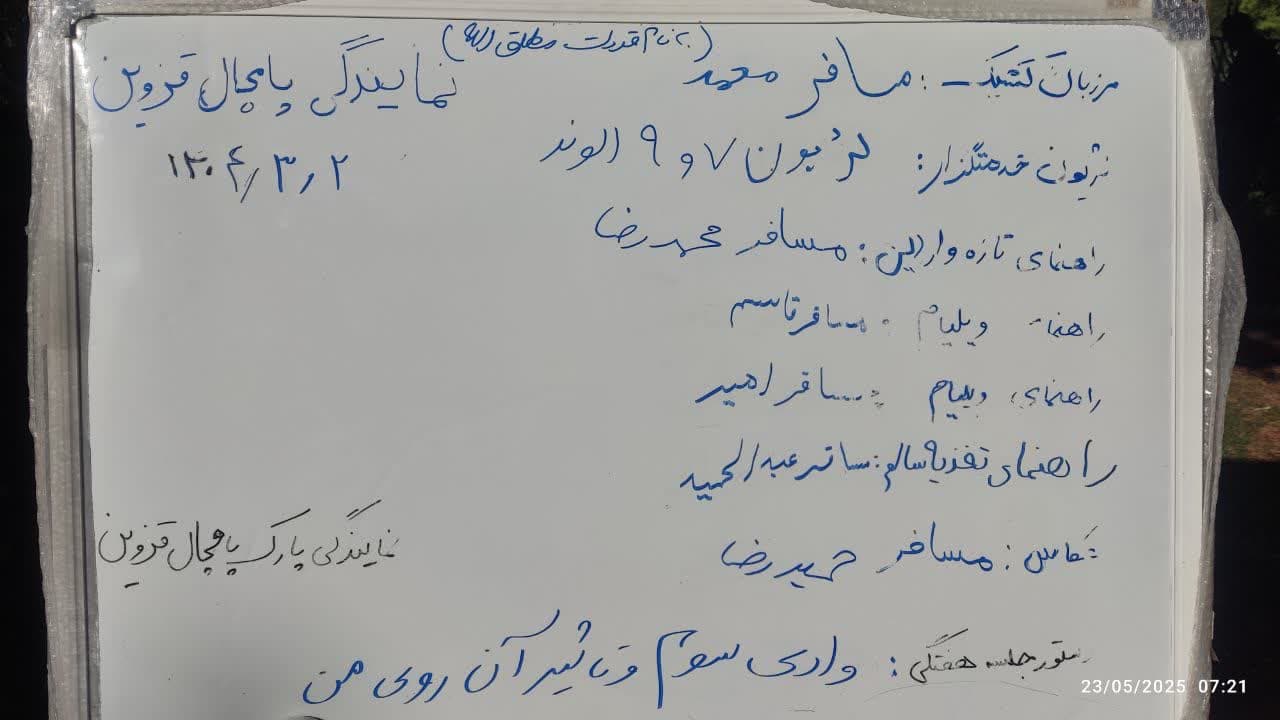 (به نام قدرت مطلق الله)
مرزبان کشیک : مسافر محمد
نمایندگی پامچال قزوین
۱۴۰۴/۳/۲
لژیون خدمتگزار : لژیون ۷ و ۹ الوند
راهنمای تازه واردین : مسافر محمدرضا
راهنمای ویلیام : مسافر قاسم
راهنمای ویلیام : مسافر امیر
راهنمای تغذیه سالم : مسافر عبدالحمید
عکاس : مسافر حمیدرضا
نمایندگی پارک پامچال قزوین
دستور جلسه هفتگی : وادی سوم و تاثیر آن روی من
23/05/2025 07:21